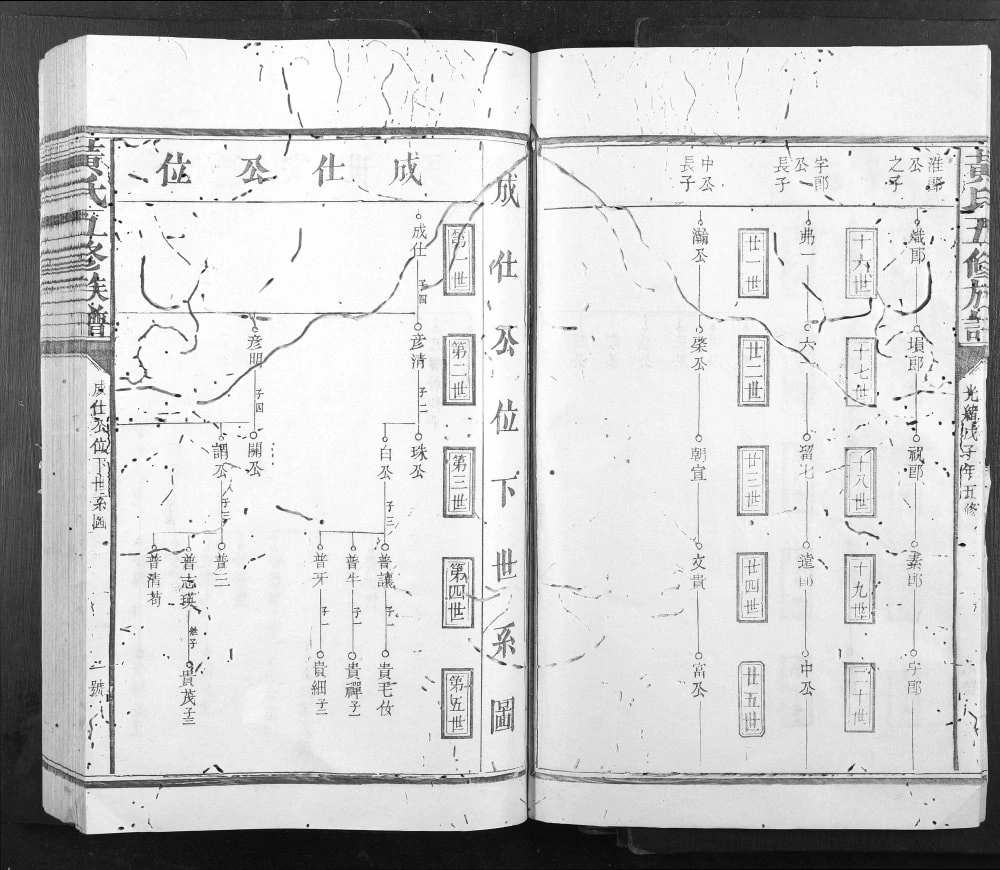 黃氏五修族譜
光緒戊子年五修
淮郎公之子
熾郎
塤郎
祝郎
素郎
宇郎
十六世
十七世
十八世
十九世
二十世
宇郎公長子
弗一
六一
瑠七
遠郎
中公
廿一世
廿二世
廿三世
廿四世
廿五世
中公長子
瀚公
棨公
朝宣
文貴
富公
成仕公位下世系圖
成仕公位
第一世
第二世
第三世
第四世
第五世
成仕 子四
彥清 子二
珠公
白公 子三
普讓 子一
貴毛攸
普牛 子一
貴禪子一
普牙 子一
貴細子二
彥明 子四
開公
謂公 子三
普三
普志瑛 繼子
貴茂子三
普清苟
黃氏五修族譜
成仕公位下世系圖
一號